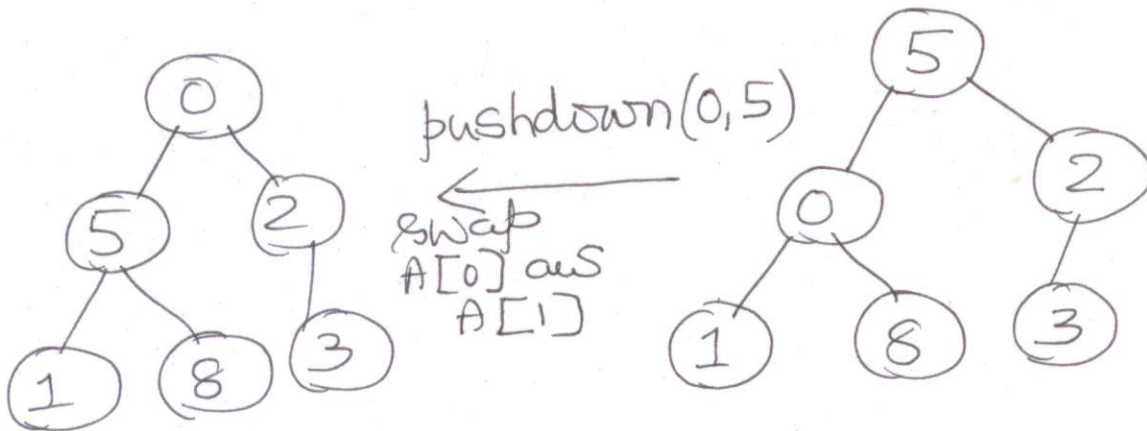 0
5 2
1 8 3
pushdown(0,5)
swap
A[0] aus
A[1]
5
0 2
1 8 3